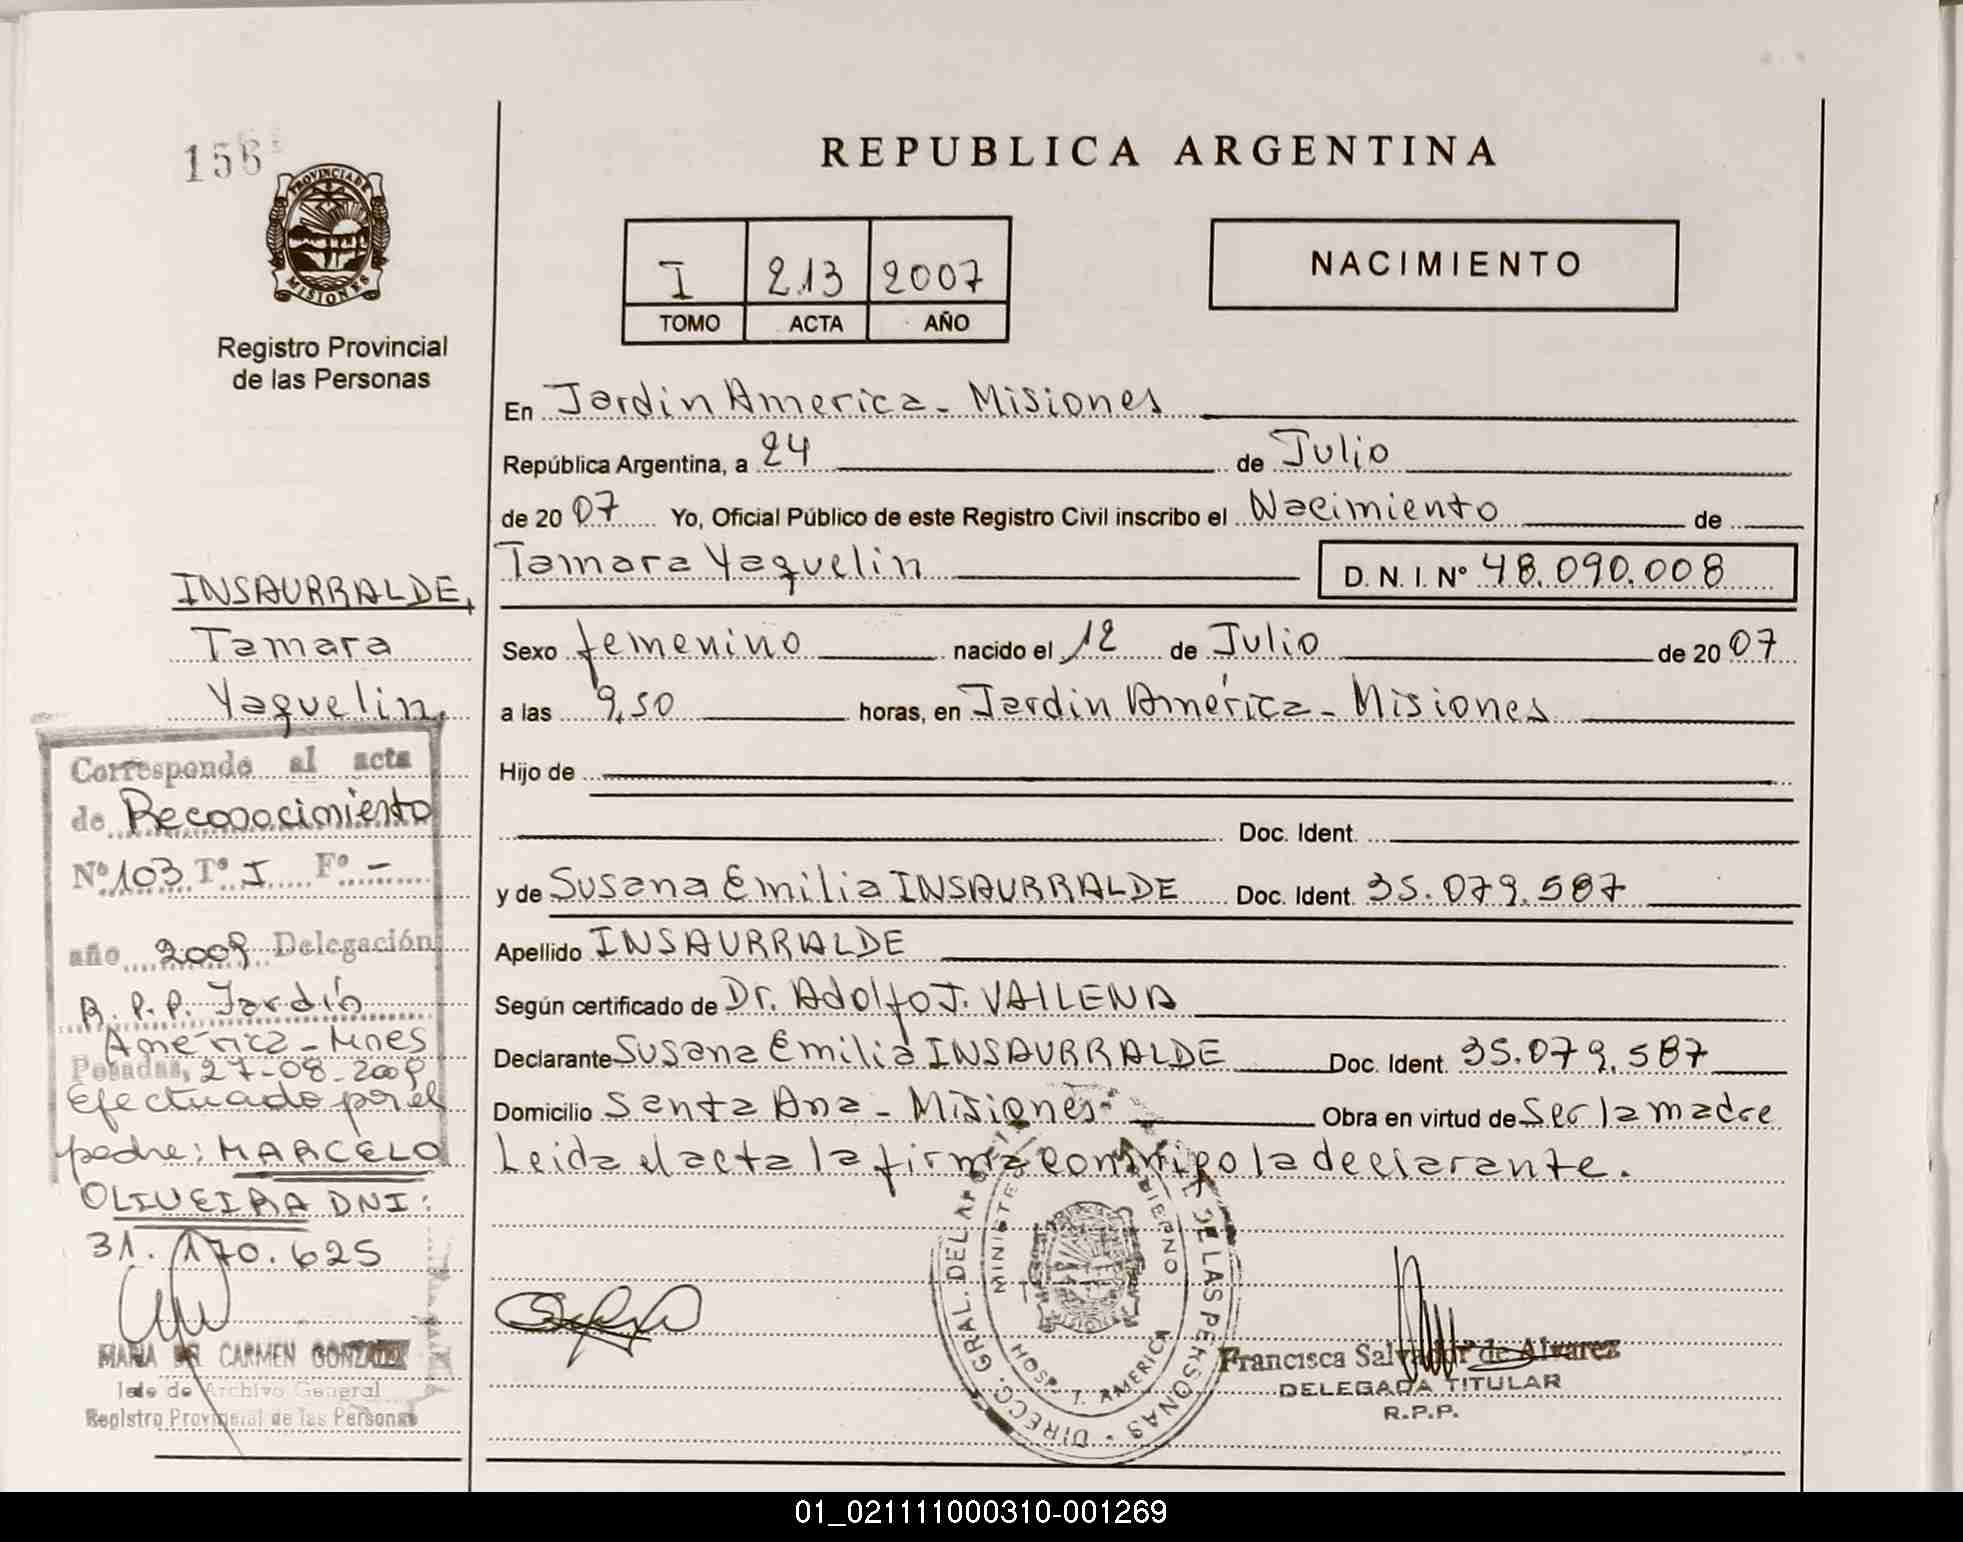 156
PROVINCIA DE
MISIONES
Registro Provincial
de las Personas
REPUBLICA ARGENTINA
I 213 2007
TOMO ACTA AÑO
NACIMIENTO
En Jardin America - Misiones
República Argentina, a 24 de Julio
de 20 07 Yo, Oficial Público de este Registro Civil inscribo el Nacimiento de
Tamara Yaquelin D. N. I. Nº 48.090.008
Sexo femenino nacido el 12 de Julio de 20 07
a las 9,50 horas, en Jardin América - Misiones
Hijo de
Doc. Ident.
y de Susana Emilia INSAURRALDE Doc. Ident. 35.079.587
Apellido INSAURRALDE
Según certificado de Dr. Adolfo J. VAILENA
Declarante Susana Emilia INSAURRALDE Doc. Ident. 35.079.587
Domicilio Santa Ana - Misiones - Obra en virtud de Ser la madre
Leida el acta la firma conmigo la declarante.
INSAURRALDE,
Tamara
Yaquelin.
Corresponde al acta
de Reconocimiento
Nº 103 Tº I Fº -
año 2009 Delegación
R.P.P. Jardín
América - Mnes
Posadas, 27-08-2009
Efectuado por el
padre: MARCELO
OLIVEIRA DNI:
31.170.625
MARIA DEL CARMEN GONZALEZ
Jefe de Archivo General
Registro Provincial de las Personas
DIRECC. GRAL. DEL DE LAS PERSONAS
HOSP. J. AMERICA
Francisca Salvador de Alvarez
DELEGADA TITULAR
R.P.P.
01_021111000310-001269